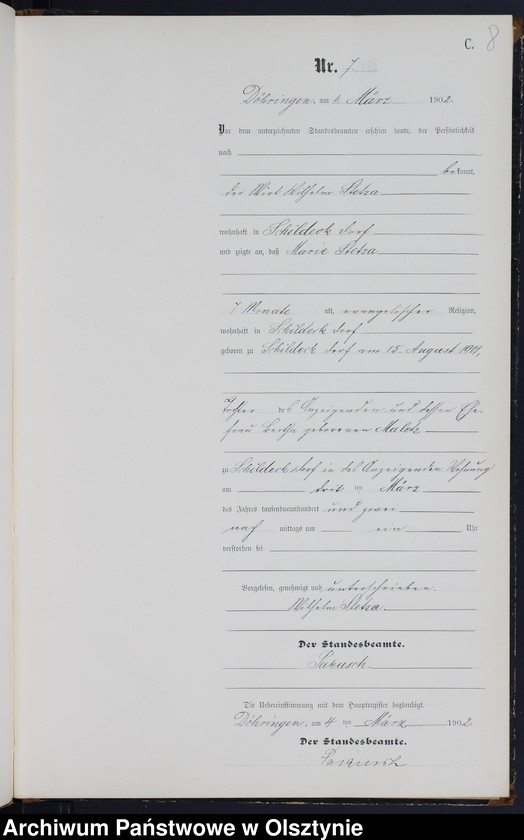 C. 8
Nr. 7.
Döhringen, am 4. März 1902.
Vor dem unterzeichneten Standesbeamten erschien heute, der Persönlichkeit
nach
bekannt,
der Wirt Wilhelm Stetza
wohnhaft in Schildeck dorf
und zeigte an, daß Marie Stetza
7 Monate alt, evangelischer Religion,
wohnhaft in Schildeck dorf
geboren zu Schildeck dorf am 15. August 1901,
Tochter des Anzeigenden und dessen Ehe-
frau Bertha geborenen
zu Schildeck dorf in des Anzeigenden Wohnung
am ten März
des Jahres tausendneunhundert und zwei
nach mittags um ein Uhr
verstorben sei
Vorgelesen, genehmigt und unterschrieben.
Wilhelm Stetza.
Der Standesbeamte.
Die Uebereinstimmung mit dem Hauptregister beglaubigt.
Döhringen, am 4 ten März 1902.
Der Standesbeamte.
Archiwum Państwowe w Olsztynie